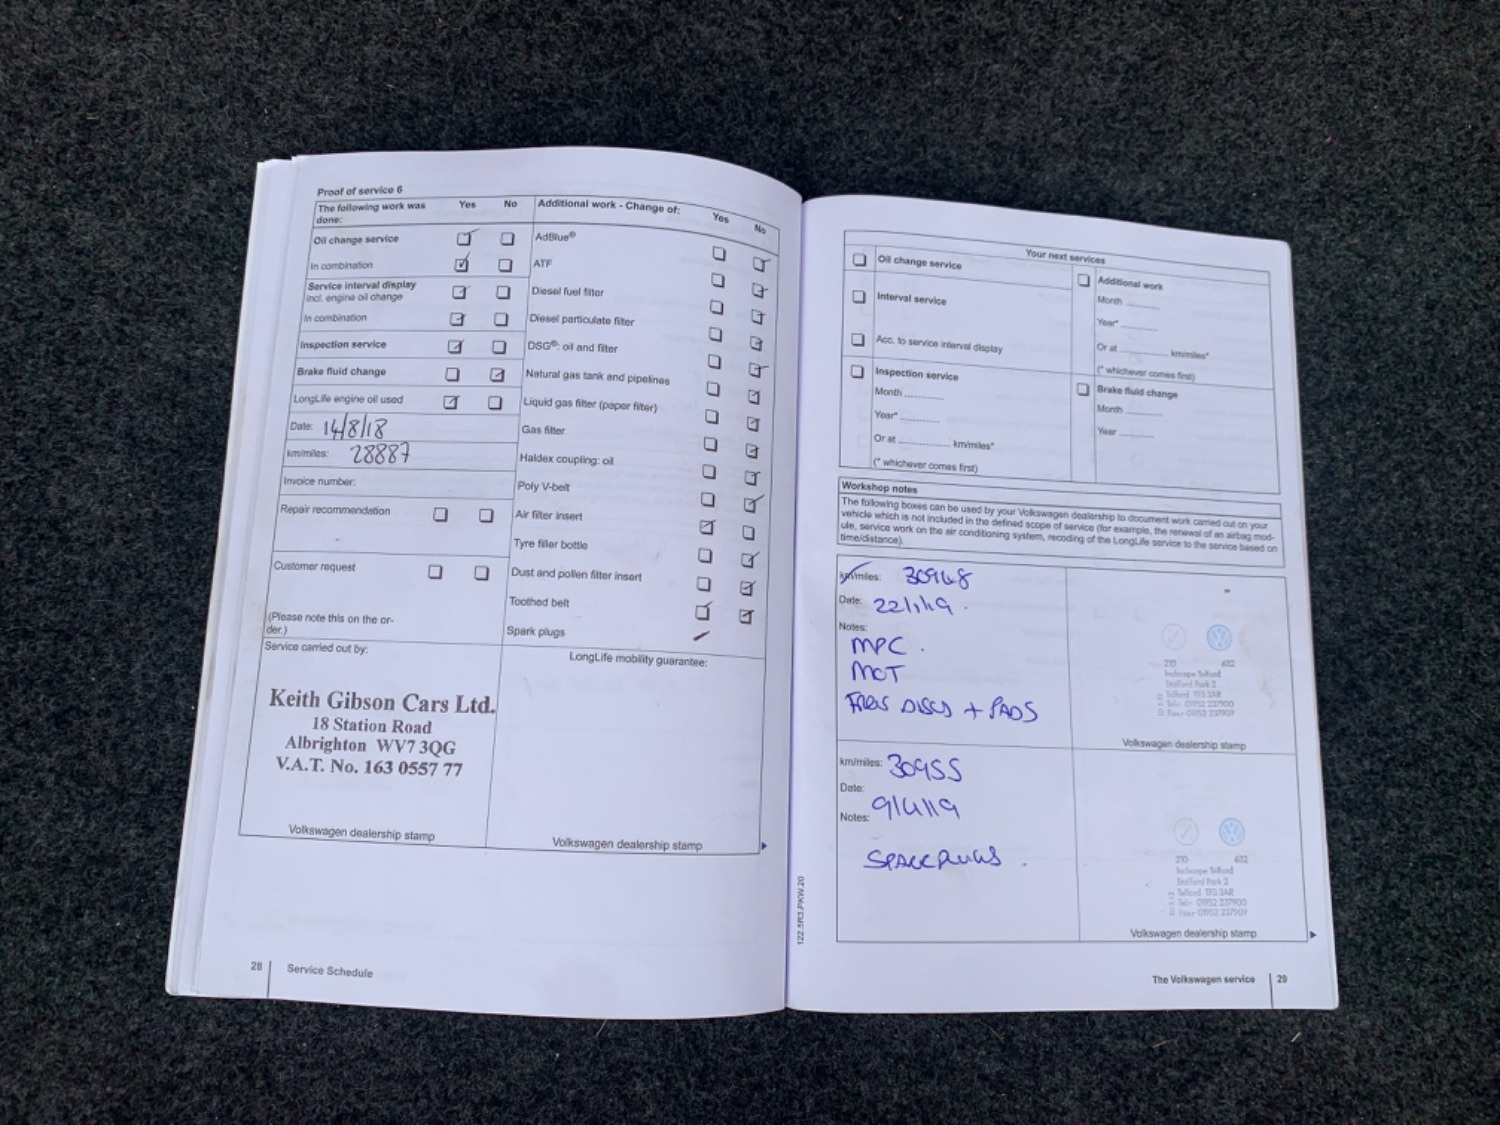 Proof of service 6
The following work was done: Yes No
Oil change service
In combination
Service interval display
incl. engine oil change
In combination
Inspection service
Brake fluid change
LongLife engine oil used
Date: 14/8/18
km/miles: 28887
Invoice number:
Repair recommendation
Customer request
(Please note this on the or-
der.)
Service carried out by:
Keith Gibson Cars Ltd.
18 Station Road
Albrighton WV7 3QG
V.A.T. No. 163 0557 77
Volkswagen dealership stamp
Additional work - Change of: Yes No
AdBlue®
ATF
Diesel fuel filter
Diesel particulate filter
DSG®: oil and filter
Natural gas tank and pipelines
Liquid gas filter (paper filter)
Gas filter
Haldex coupling: oil
Poly V-belt
Air filter insert
Tyre filler bottle
Dust and pollen filter insert
Toothed belt
Spark plugs
LongLife mobility guarantee:
Volkswagen dealership stamp
28 Service Schedule
Your next services
Oil change service
Interval service
Acc. to service interval display
Inspection service
Month ...........
Year* ...........
Or at .............. km/miles*
(* whichever comes first)
Additional work
Month ..........
Year* ..........
Or at .............. km/miles*
(* whichever comes first)
Brake fluid change
Month ..........
Year ..........
Workshop notes
The following boxes can be used by your Volkswagen dealership to document work carried out on your
vehicle which is not included in the defined scope of service (for example, the renewal of an airbag mod-
ule, service work on the air conditioning system, recoding of the LongLife service to the service based on
time/distance).
km/miles: 30948
Date: 22/1/19.
Notes:
MPC.
MOT
DISCS + PADS
210 632
Inchcape Telford
Stafford Park 2
Telford TF3 3AR
Tel: 01952 237900
Fax: 01952 237909
Volkswagen dealership stamp
km/miles: 30955
Date:
9/4/19
Notes:
SPARK PLUGS.
210 632
Inchcape Telford
Stafford Park 2
Telford TF3 3AR
Tel: 01952 237900
Fax: 01952 237909
Volkswagen dealership stamp
122.5R3.PKW.20
The Volkswagen service 29